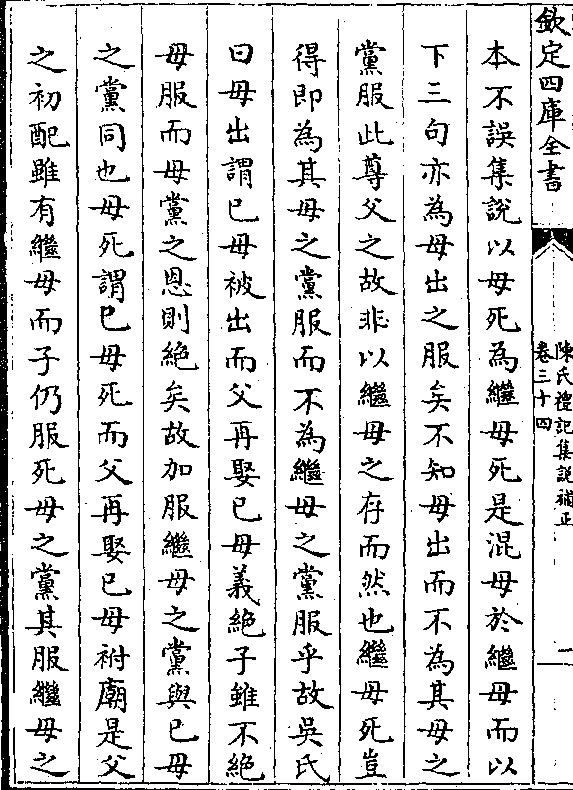 欽定四庫全書
陳氏禮記集說補正
卷三十四
一
本不誤集說以母死為繼母死是混母於繼母而以
下三句亦為母出之服矣不知母出而不為其母之
黨服此尊父之故非以繼母之存而然也繼母死豈
得即為其母之黨服而不為繼母之黨服乎故吳氏
曰母出謂已母被出而父再娶已母義絶子雖不絶
母服而母黨之恩則絶矣故加服繼母之黨與已母
之黨同也母死謂已母死而父再娶已母祔廟是父
之初配雖有繼母而子仍服死母之黨其服繼母之